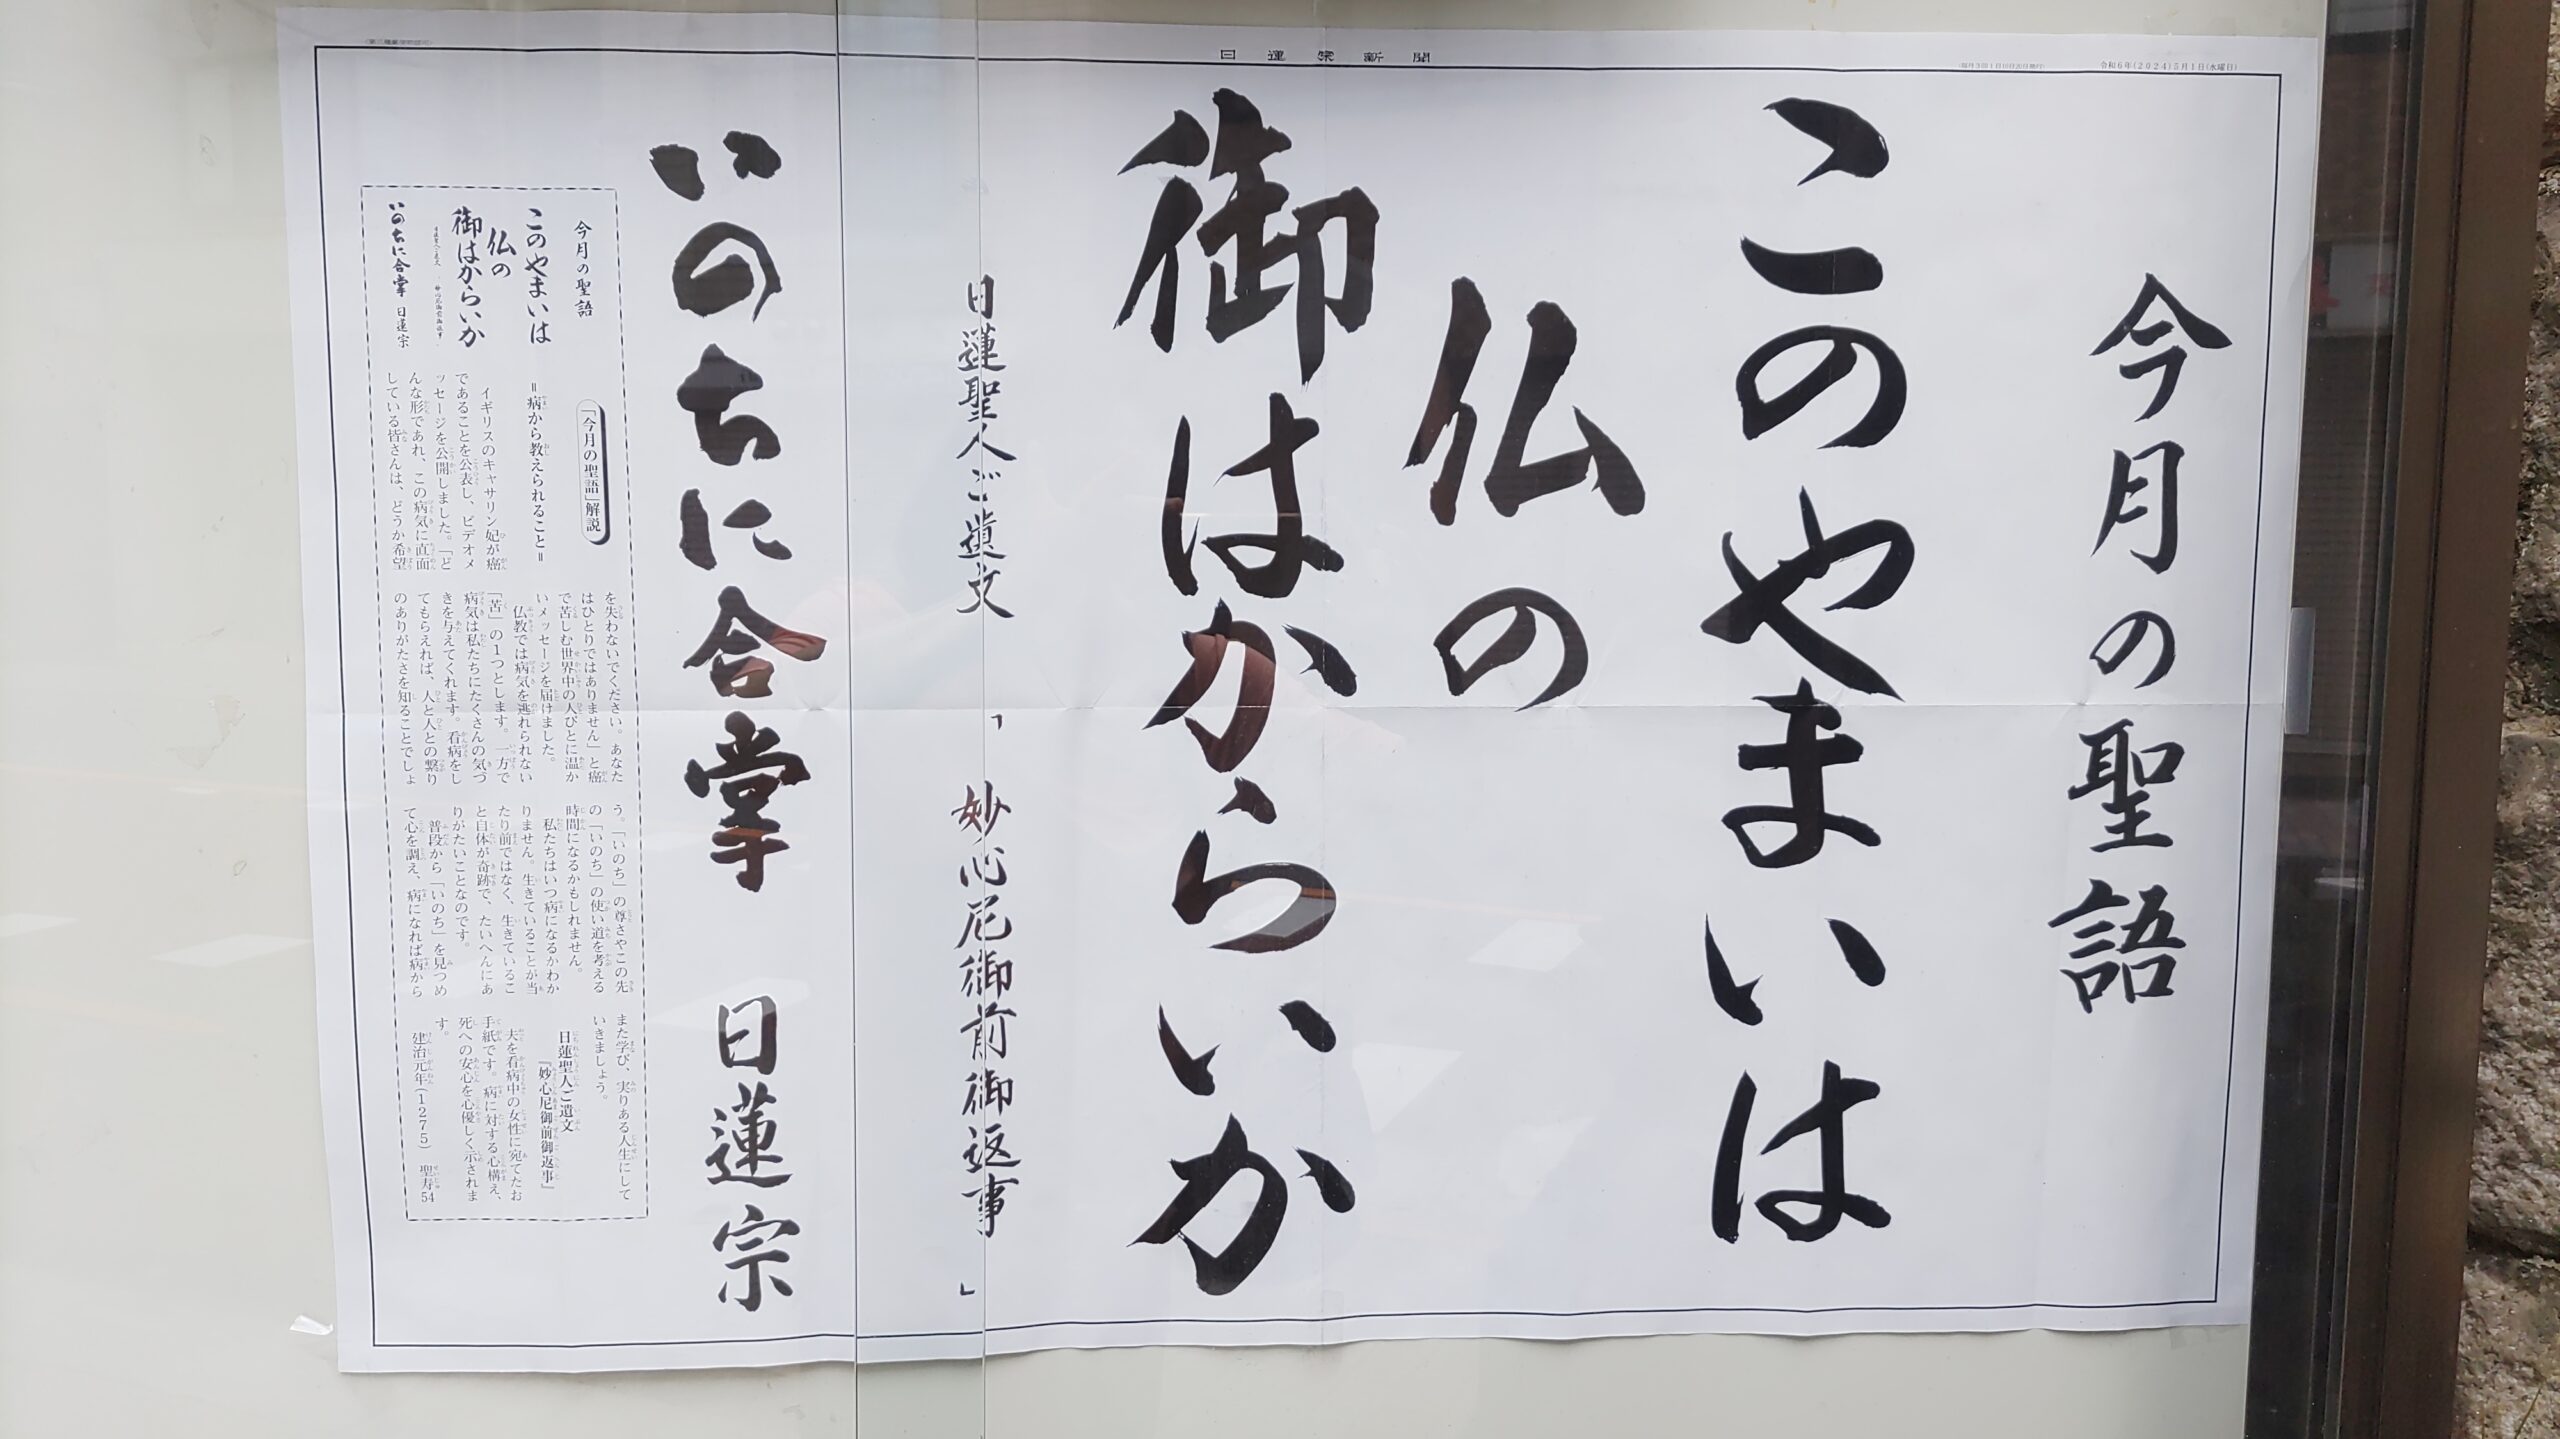 日蓮宗新聞
令和6年(2024)5月1日(水曜日)
今月の聖語
このやまいは
仏の
御はからいか
日蓮聖人ご遺文「妙心尼御前御返事」
いのちに合掌 日蓮宗
今月の聖語
このやまいは
仏の
御はからいか
日蓮聖人ご遺文「妙心尼御前御返事」
いのちに合掌 日蓮宗
「今月の聖語」解説
=病から教えられること=
イギリスのキャサリン妃が癌
であることを公表し、ビデオメ
ッセージを公開しました。「ど
んな形であれ、この病気に直面
している皆さんは、どうか希望
を失わないでください。あなた
はひとりではありません」と癌
で苦しむ世界中の人びとに温か
いメッセージを届けました。
仏教では病気を逃れられない
「苦」の1つとします。一方で
病気は私たちにたくさんの気づ
きを与えてくれます。看病をし
てもらえれば、人と人との繋り
のありがたさを知ることでしょ
う。「いのち」の尊さやこの先
の「いのち」の使い道を考える
時間になるかもしれません。
私たちはいつ病になるかわか
りません。生きていることが当
たり前ではなく、生きているこ
と自体が奇跡で、たいへんにあ
りがたいことなのです。
普段から「いのち」を見つめ
て心を調え、病になれば病から
また学び、実りある人生にして
いきましょう。
日蓮聖人ご遺文
『妙心尼御前御返事』
夫を看病中の女性に宛てたお
手紙です。病に対する心構え、
死への安心を心優しく示されま
す。
建治元年(1275) 聖寿54